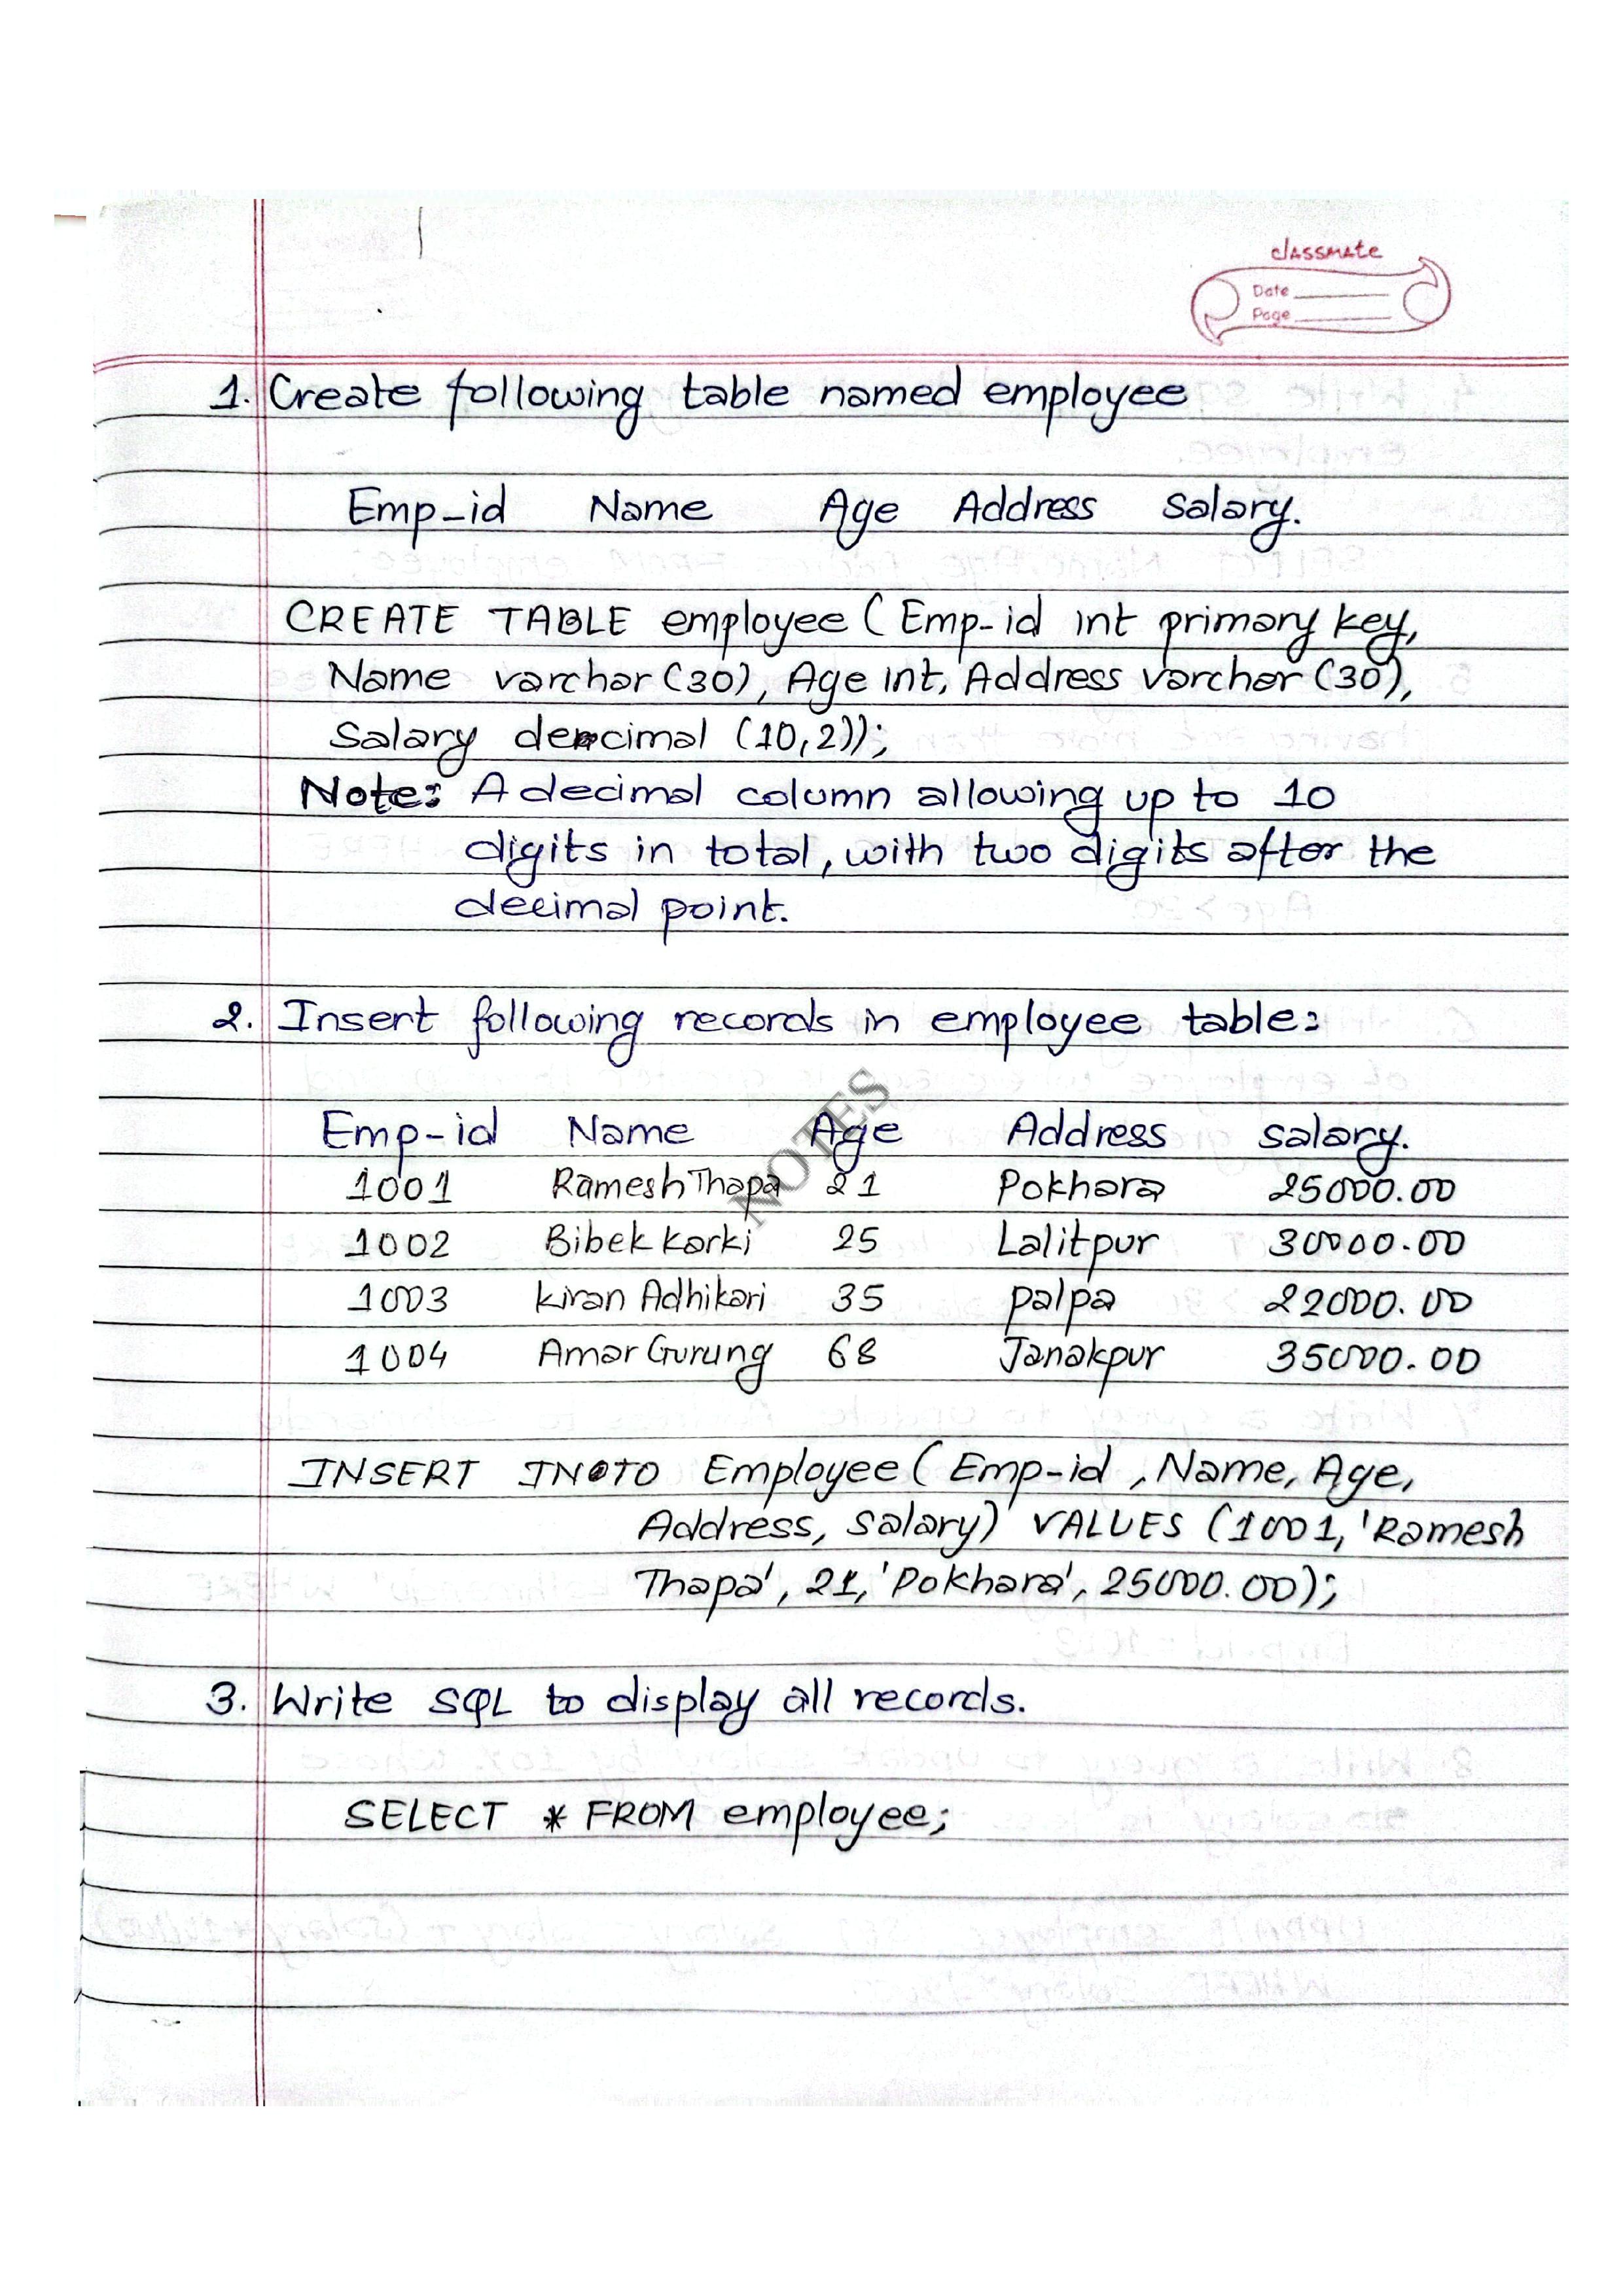 classmate
Date
Page
1. Create following table named employee
Emp-id Name Age Address salary.
CREATE TABLE employee ( Emp-id int primary key,
Name varchar (30), Age int, Address varchar (30),
Salary decimal (10,2));
Note: A decimal column allowing up to 10
digits in total, with two digits after the
decimal point.
2. Insert following records in employee table:
Emp-id Name Age Address salary.
1001 Ramesh Thapa 21 Pokhara 25000.00
1002 Bibek karki 25 Lalitpur 30000.00
1003 kiran Adhikari 35 palpa 22000.00
1004 Amar Gurung 68 Janakpur 35000.00
NOTES
INSERT INTO Employee ( Emp-id, Name, Age,
Address, salary) VALUES (1001, 'Ramesh
Thapa', 21, 'Pokhara', 25000.00);
3. Write SQL to display all records.
SELECT * FROM employee;